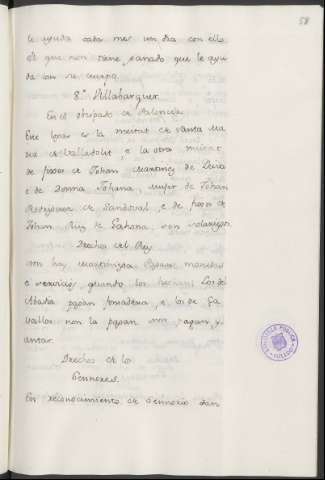 58
le ayuda cada mes un dia con ello
el que non tiene ganado que le ayu
da con su cuerpo.
8.º Villabarguer
En el obispado de Palencia
Este logar es la meitat de Santa Ma
ria de Valladolit, e la otra meitat
de fijos de Johan Martinez de Leiva
e de Donna Johana, mujer de Johan
Rodriguez de Sandoval, e de fijos de
Johan Ruiz de son solariegos
Drechos del Rey
non hay martiniega
e servicios, quando los Los del
Abadia pagan fonsadera, e los de
vallos non la pagan non pagan y
antar.
Drechos de los
Sennores.
En reconocimiento de Sennorio dan
BIBLIOTECA PUBLICA
TOLEDO